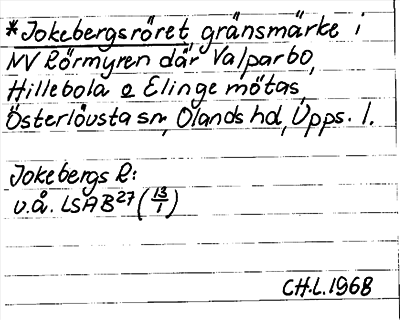 *Jokebergsröret, gränsmärke i
NV Rörmyren där Valparbo,
Hillebola o Elinge mötas,
Österlövsta sn, Olands hd, Upps. l.
Jokebergs R:
u.å. LSA B27 (13/1)
CH.L.1968